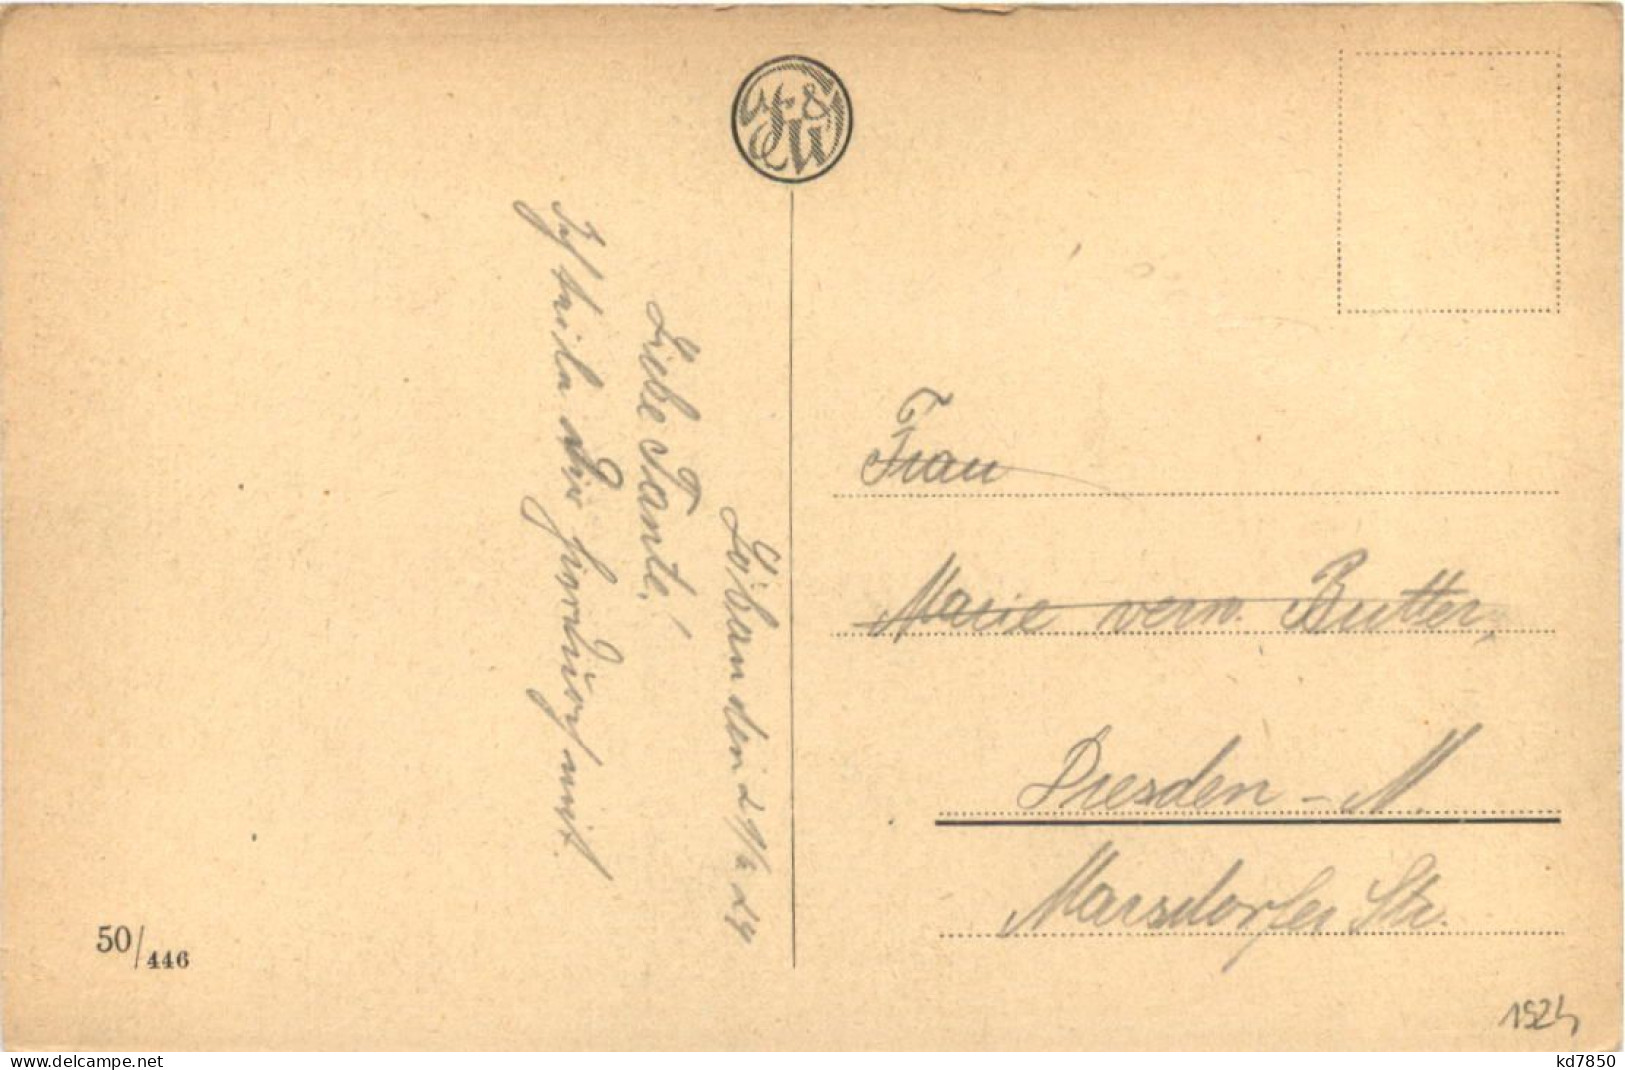 Löbau den 21/2 24
Liebe Tante!
Ich teile Dir hierdurch mit
Frau
Marie verw. Butter,
Dresden - N.
Marsdorfer Str.
50/446
1924
www.delcampe.net
kd7850